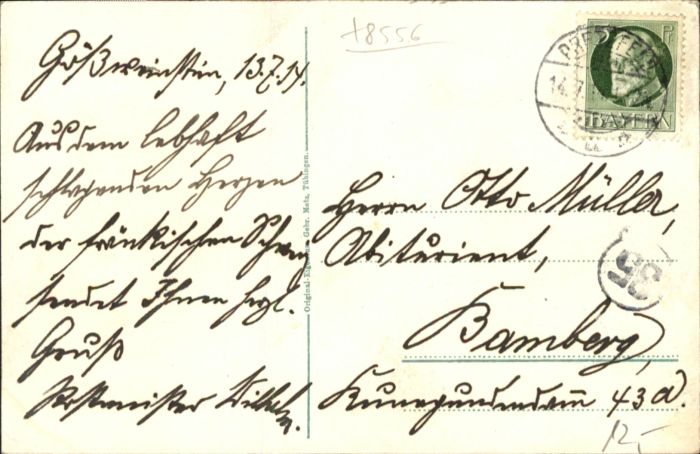 +8556
Gößweinstein, 13.7.14.
Aus dem lebhaft
schlagenden Herzen
der fränkischen Schweiz
sendet Ihnen hrzl.
Gruß
Postmeister Wilhelm.
Original-Eigentum Gebr. Metz, Tübingen.
5 Pf
BAYERN
14.7.
Herrn Otto Müller,
Abiturient,
Bamberg,
Kunegundendam 43a.
35
12,-